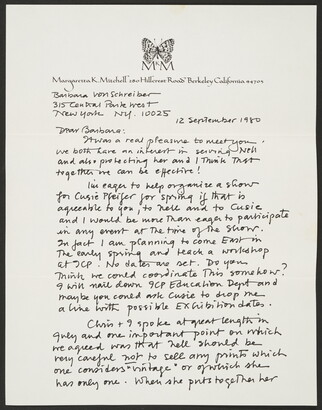 McM
Margaretta K. Mitchell 280 Hillcrest Road Berkeley California 94705
Barbara von Schreiber
315 Central Park West
New York NY. 10025
12 September 1980
Dear Barbara:
It was a real pleasure to meet you.
We both have an interest in serving Nell
and also protecting her and I think that
together we can be effective!
I'm eager to help organize a show
for Cusie Pfeifer for spring if that is
agreeable to you, to Nell and to Cusie
and I would be more than eager to participate
in any event at the time of the show.
In fact I am planning to come East in
the early spring and teach a workshop
at ICP. No dates are set. Do you
think we could coordinate this somehow?
I will nail down ICP Education Dept and
maybe you could ask Cusie to drop me
a line with possible exhibition dates.
Chris + I spoke at great length in
July and one important point on which
we agreed was that Nell should be
very careful not to sell any prints which
one considers "vintage" or of which she
has only one. When she puts together her